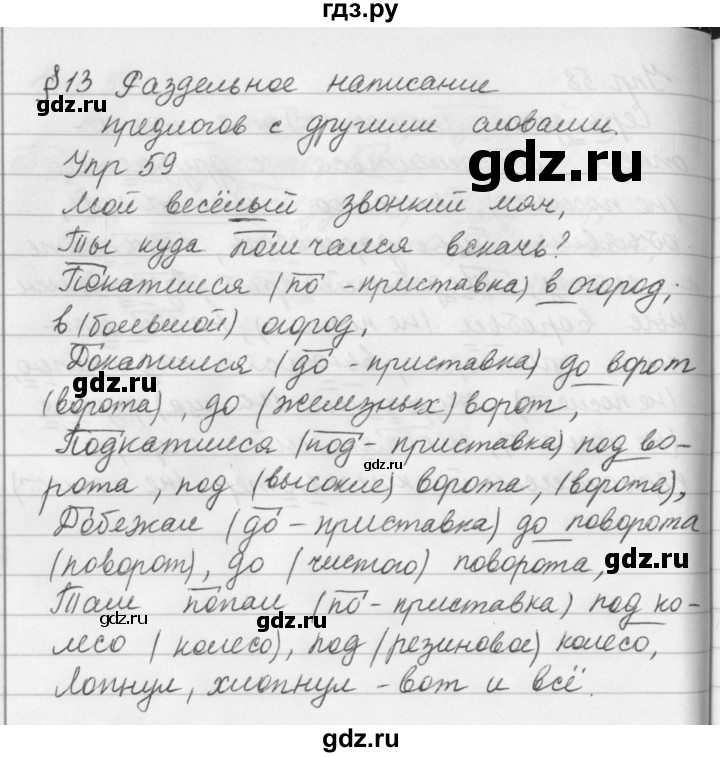 гдз.ру
§13 Раздельное написание
gdz.ru
предлогов с другими словами.
gdz.ru
Упр 59
Мой весёлый звонкий мяч,
Ты куда помчался вскачь?
Покатился (по - приставка) в огород,
gdz.ru
в (большой) огород,
Докатился (до - приставка) до ворот
gdz.ru
(ворота), до (железных) ворот,
Подкатился (под - приставка) под во-
gdz.ru
рота, под (высокие) ворота, (ворота),
Добежал (до - приставка) до поворота
gdz.ru
(поворот), до (чистого) поворота,
Там попал (по - приставка) под ко-
gdz.ru
лесо (колесо), под (резиновое) колесо,
Лопнул, хлопнул - вот и всё.
gdz.ru
gdz.ru